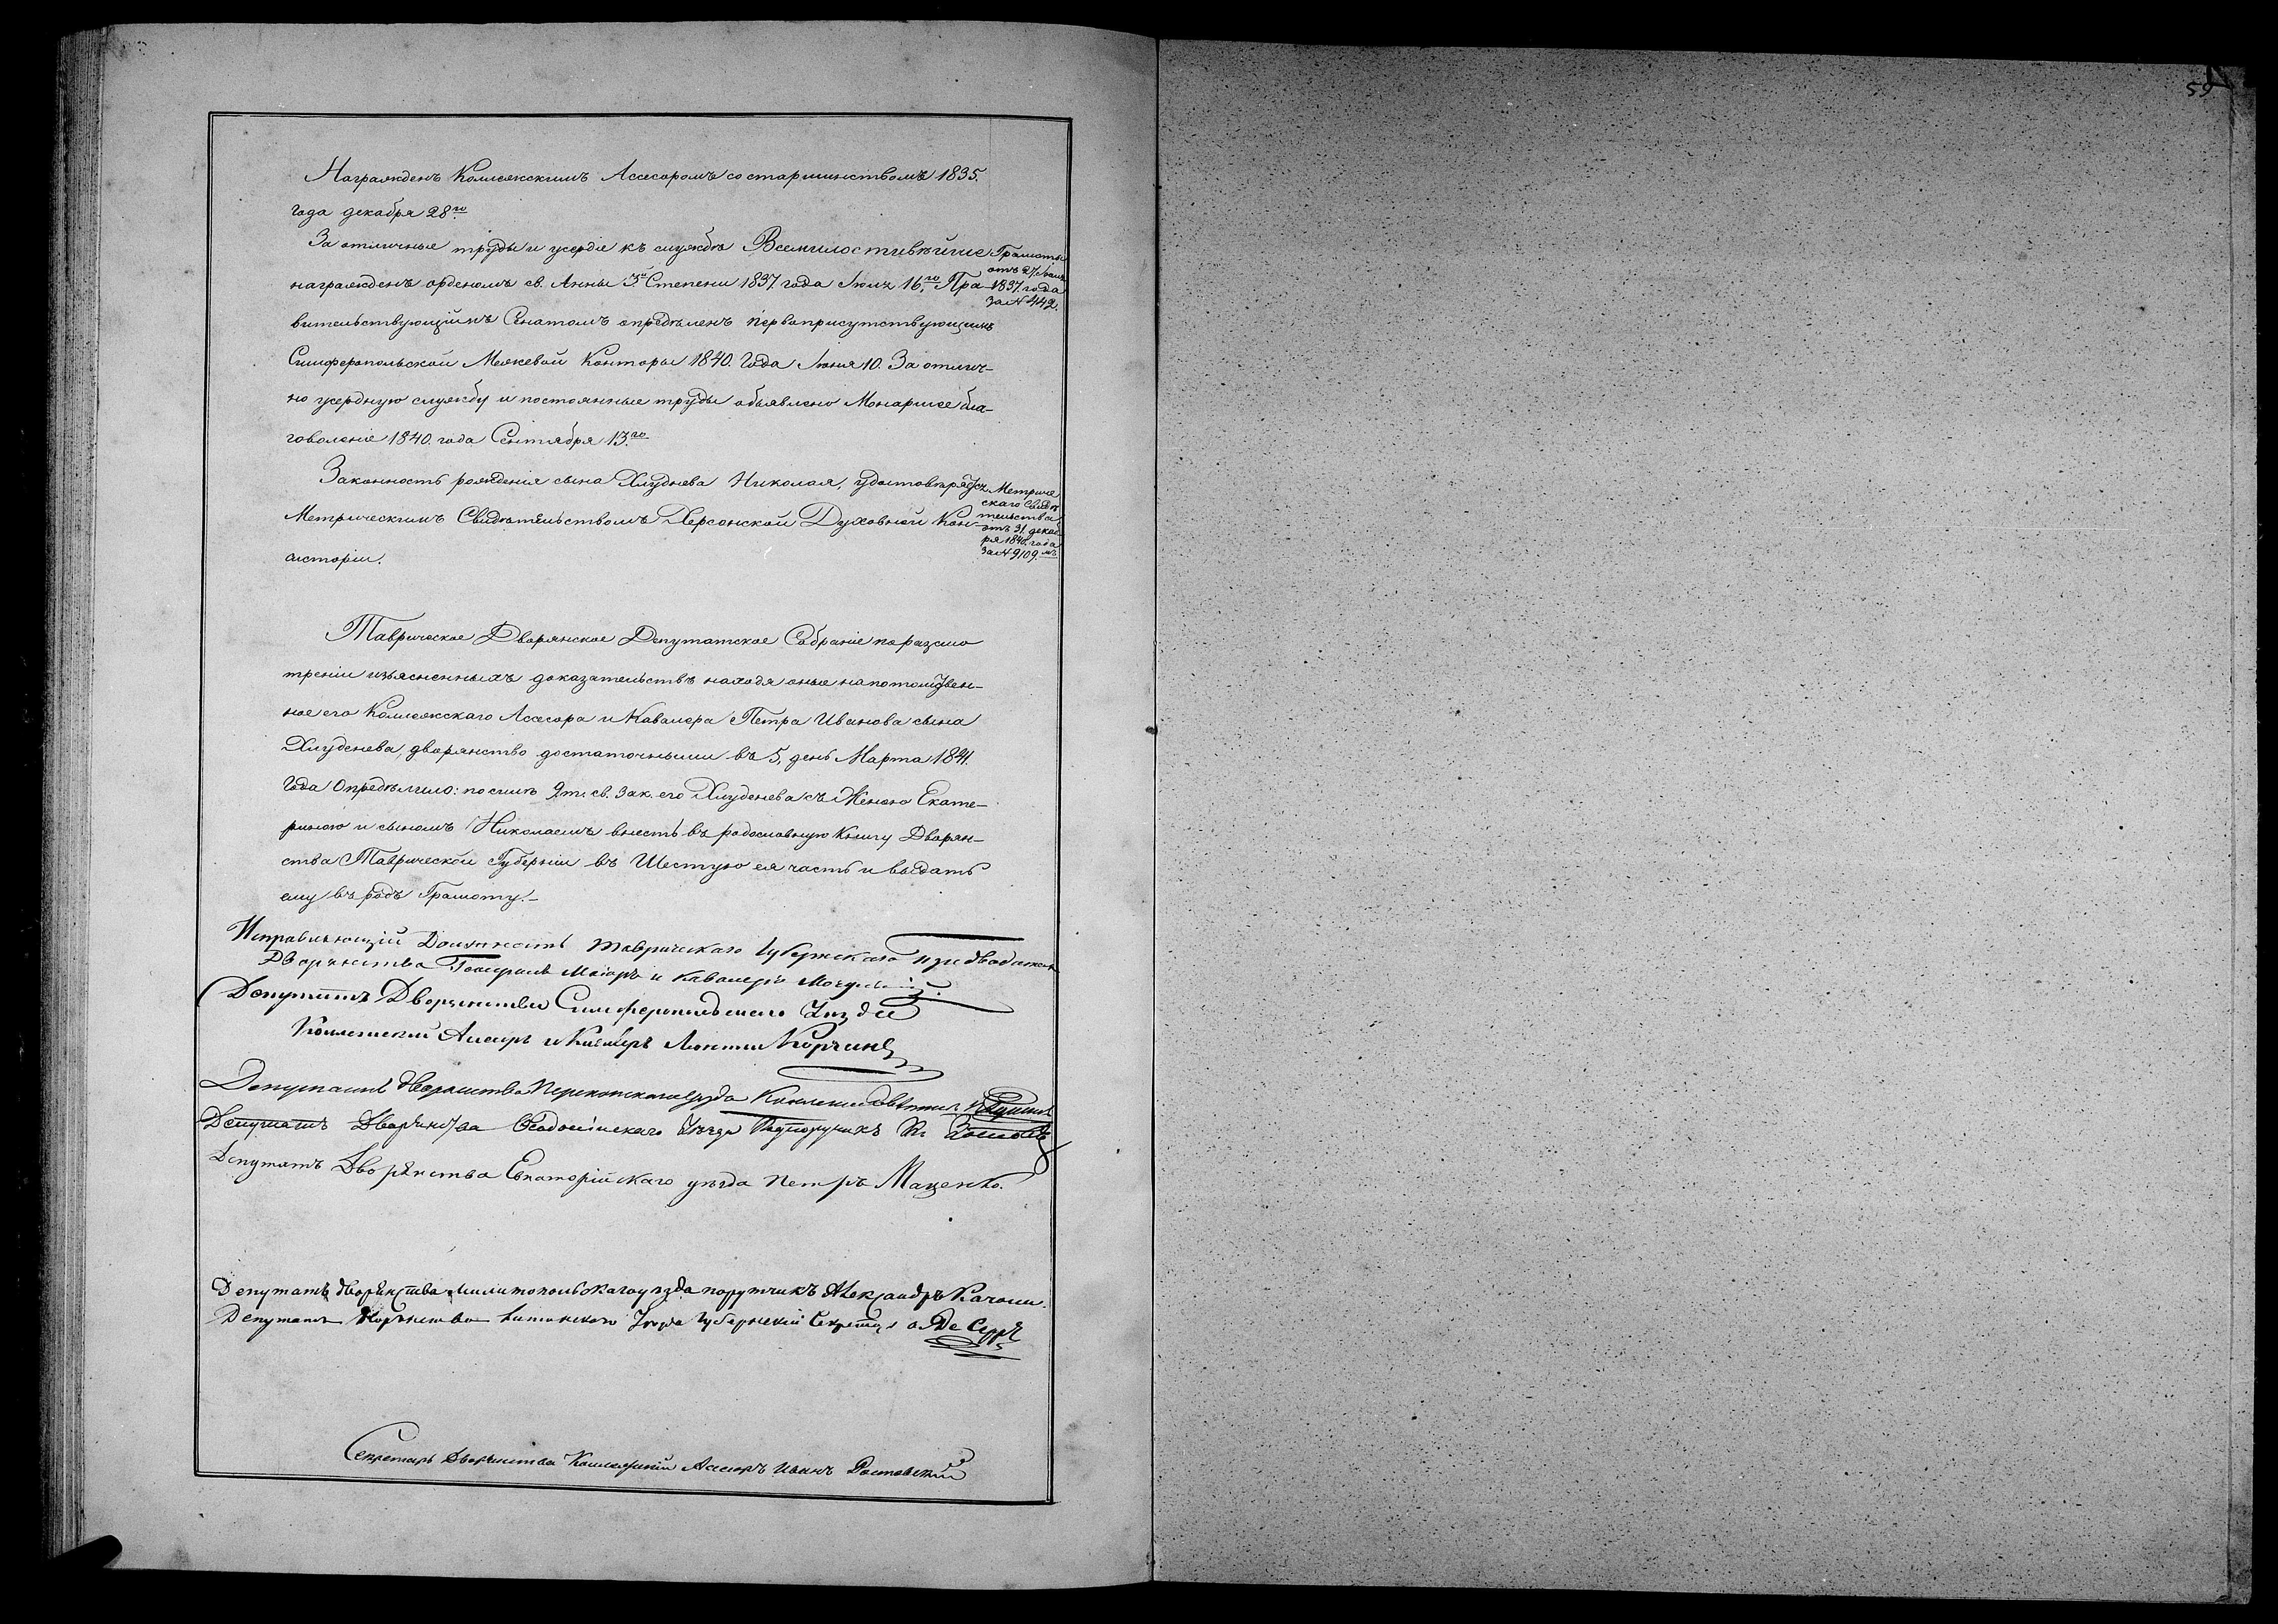 59
Награжденъ Коллежскимъ Ассесоромъ со старшинствомъ 1835.
года декабря 28го
За отличные труды и усердіе къ службѣ Всемилостивѣйше
награжденъ орденомъ св. Анны 3й Степени 1837. года Іюля 16.го Пра-
вительствующимъ Сенатомъ опредѣленъ первоприсутствующимъ
Симферопольской Межевой Конторы 1840. Года Іюня 10. За отлич-
но усердную службу и постоянные труды объявлено Монаршее бла-
говоленіе 1840. года Сентября 13.го
Грамоты
отъ 27. Іюля
1837. года
за N 442.
Законность рожденія сына Хлуднева Николая, удостовѣряется
Метрическимъ Свидѣтельствомъ Херсонской Духовной Кон-
систоріи.
Метриче
скаго Свидѣ
тельства
отъ 31. декаб
ря 1840. года
за N 9109.мъ
Таврическое Дворянское Депутатское Собраніе по разсмо
треніи изъясненныхъ доказательствъ находя оные на потомствен-
ное его Коллежскаго Ассесора и Кавалера Петра Иванова сына
Хлуденева, дворянство достаточными въ 5, день Марта 1841.
Года Опредѣлило: по силѣ 9 т. св. Зак. его Хлуденева съ Женою Екате-
риною и сыномъ Николаемъ внесть въ родословную Книгу Дворян-
ства Таврической Губерніи въ Шестую ея часть и выдать
ему въ родъ Грамоту.-
Исправляющій Должность Таврическаго Губернскаго Предводителя
Дворянства Генералъ Маіоръ и Кавалеръ
Депутатъ Дворянства Симферопольскаго Уѣзда
Коллежскій Ассесоръ и Кавалеръ
Депутатъ Дворянства Перекопскаго уѣзда
Депутатъ Дворянства Ѳеодосійскаго Уѣзда Подпоручикъ
Депутатъ Дворянства Евпаторійскаго уѣзда Петръ Маценко.
Депутатъ дворянства Мелитопольскаго уѣзда поручикъ Александръ Качони.
Депутатъ Дворянства Ялтинскаго Уѣзда Губернскій Секретарь Де Серръ
Секретарь Дворянства Коллежскій Ассесоръ Иванъ Ростовскій